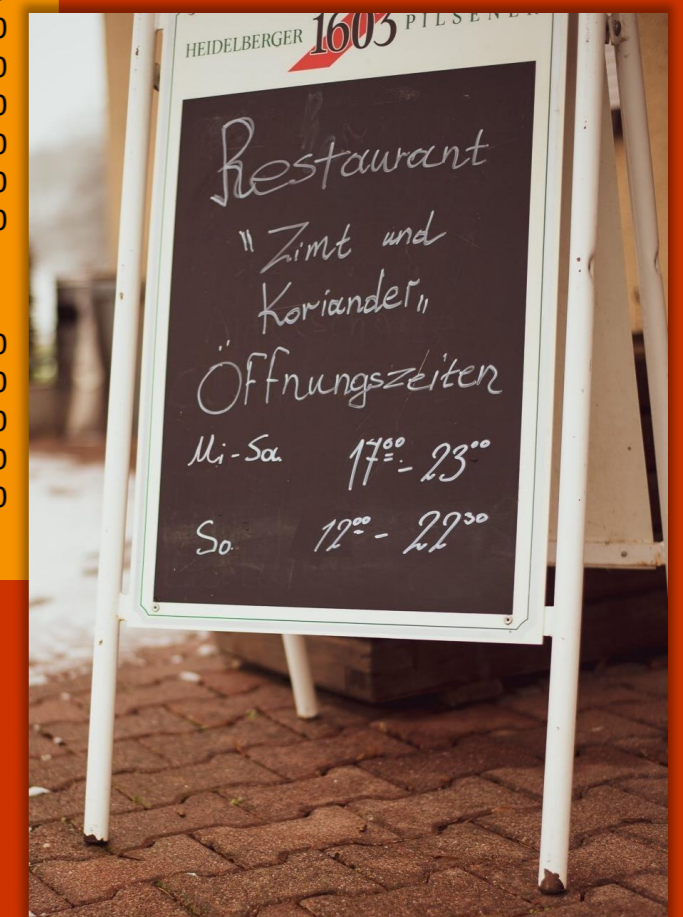 HEIDELBERGER 1603 PILSENER
Restaurant
"Zimt und
Koriander„
Öffnungszeiten
Mi-Sa 17⁰⁰- 23⁰⁰
So 12⁰⁰ - 22³⁰
0
0
0
0
0
0
0
0
0
0
0